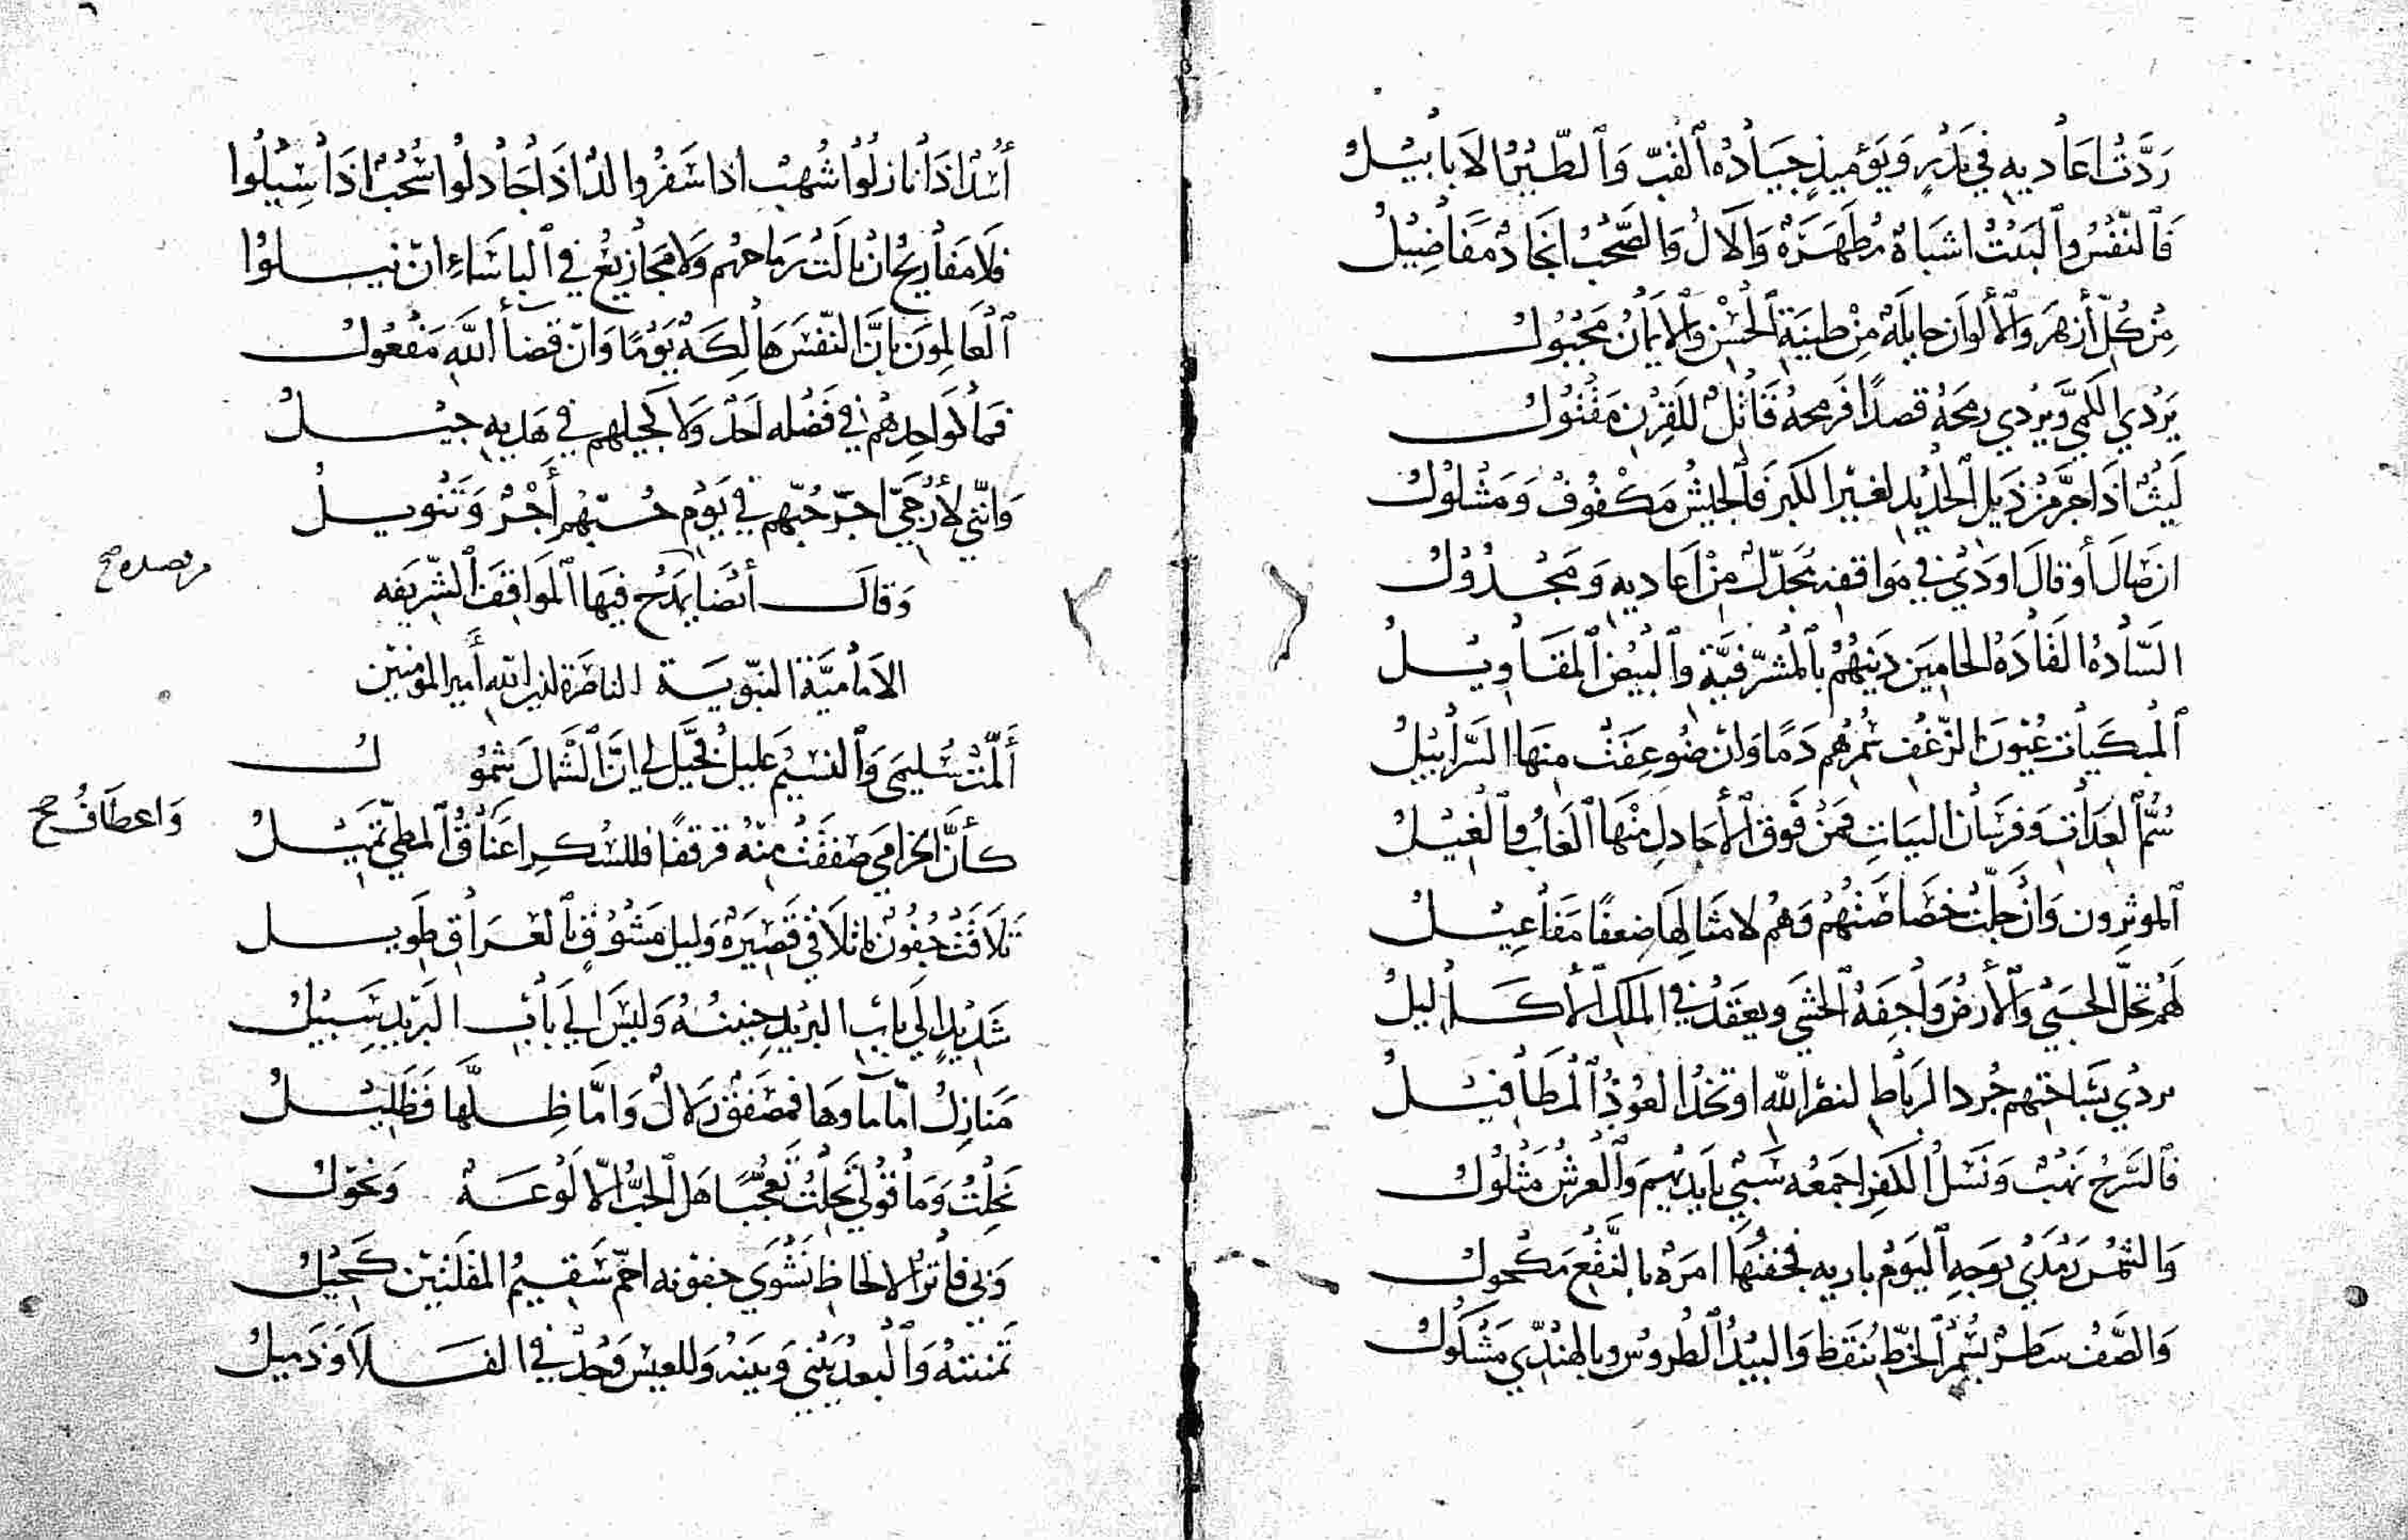 رَدَّتْ اَعَاديهِ في بَدْرٍ وَيَوْميذٍ جِيَادُهُ ٱلقُبُّ وَٱلطَّيْرُ الاَبَابيْلُ
فَالنَّفْسُ وٱلبَيْتُ اشبَاهٌ مُطَهَّرَةٌ وَالآلُ وَالصَّحْبُ انجَادٌ مَفَاضِيْلُ
مِنْ كُلِّ أزهَرَ وٱلألْوَان حَايِلَةٌ مِنْ طينَةِ ٱلحُسْنِ وٱلايمَانِ مَجْبُولُ
يَرْدي الكَمِيَّ ويَرْدي رمحَهُ قصدًا فَرمحهُ قَاتِلٌ للقِرْنِ مَقْتُولُ
لَيْثٌ اذَا جَرَّ مِنْ ذَيلِ ٱلحَدْيدِ لغَيْرِ الكبرِ فَٱلجيْشُ مَكْفُوفٌ وَمَشْلُولُ
ان صَالَ أوْ قالَ اودَي في مَوَاقفِهِ مُجَدّلٌ مِنْ اَعَاديهِ وَمَجْدُولُ
السَّادَةُ القَادَةُ الحَامينَ دَينَهُمُ بٱلمَشْرَفيَّةِ وٱلبيْضُ ٱلمقَاويْلُ
ٱلمُبكيَاتُ عُيُونَ الزَّغْفِ سُمرُهُم دَمًا وَانْ ضُوعِفَتْ مِنهَا السَّرَابيْلُ
سُمُّ ٱلعِدَاةِ وَفرسَانُ البيَاتِ فَمَنْ فَوقَ ٱلأجَادِلِ مِنْهَا ٱلغَابُ وٱلْغِيْلُ
ٱلموثِرون وَانْ جلّتْ خَصَاصَتُهُم وَهُم لامثَالِهَا ضِعفًا مَفَاعِيْلُ
لَهُمْ تُحَلُّ الحُبَي وَٱلأرضُ وَاجِفَةُ ٱلحَشَي ويعقَدُ في المَلكِ ٱلأكَاليلُ
يردي بسَاحَتِهِم جُردُ الرباطِ لنصْرِ اللّهِ اوتخْدُ العُوْذُ ٱلمطَافيْلُ
فَٱلسَّرحُ نَهْبٌ وَنَسْلُ الكفرِ اجمَعُه سَبْيٌ بايديْهِم وَٱلعَرشُ مَثْلُولُ
وَالشَّمْسُ رَمْدَيْ بوَجهِ ٱليَوْمِ باديه فجفنُهَا امرَهٌ بالنَّقْعِ مَكْحولُ
وَالصَّفُّ سَطرٌ بسُمْرِ ٱلخَطِّ نُنقَط وَالبيْدُ ٱلطُروسُ وبالهنْدّي مَشْكولُ
أُسْدٌ اذَا نازلُوا شُهبٌ اذا سَفرُوا لُدٌّ اذَا جَادلُوا سُحُبٌ اذَا سِيْلُوا
فلَا مَفَاريحُ انْ نالَتْ رمَاحهُم وَلا مجَازيْعُ في ٱلباسَاءِ انْ نيلوُا
ٱلْعَالمِونَ بانَّ النّفْسَ هَالِكَةٌ يَوْمًا وَانّ قضَأ اللَّهِ مَفْعُولُ
فمَا لوَاحِدِهُمْ في فَضْله اَحَدٌ وَلا لجيلهم في هَديهِ جيْلُ
وَانّني لأرَجّي اجرّ حُبّهم في يَوْمٍ حُبّهُم أَجْرٌ وَتَنْويلُ
وَقالَ أيْضَا يَمْدَحُ فيهَا ٱلمَوَاقِفَ ٱلشَّريفَه
الاَمَاميَّةَ النبّويَةَ الناصَرَة لدين اللهِ أميرَ المؤمنين
أَلمَّتْ سُليمَى وَٱلنسيْمُ عَليلُ فَخُيّلَ لي انَّ ٱلشَّمَالَ شَمُولُ
كأنَّ الخزَامي صَفقَتْ مِنْهُ قرقفًا فللسُكرِ اعنَاقُ ٱلمطيّ تَميْلُ
وَاعطَافُ صح
تَلَاقَتْ جفُونٌ ما تلَاقي قَصْيَرَةٌ وَليل مَشُوْقٍ بٱلعرَاقِ طَويلُ
شَدْيْدٍ الَي بَابِ البريْدِ حِنينُهُ وَليْسَ الَي بَابِ البَريْدِ سَبيْلُ
مَنازِلُ امّا مآوهَا فمصَفّقٌ زلالٌ وَامَّا ظِلّها فَظَليْلُ
نَحِلتُ وَمَا قوْلي نَحِلتُ تَعُجّبًا هَل ٱلحُبُّ الّا لَوْعَةٌ وَنحُولُ
وَبي فاترُ الالحَاظِ نَشْوَي جفونه احمّ سَقيمُ المقلَتين كَحيْلُ
تَمنيتهُ وَٱلبعدُ بَيْني وَبينَهُ وَللعيْس وَخْدٌ في الفَلَا وَذَميلُ